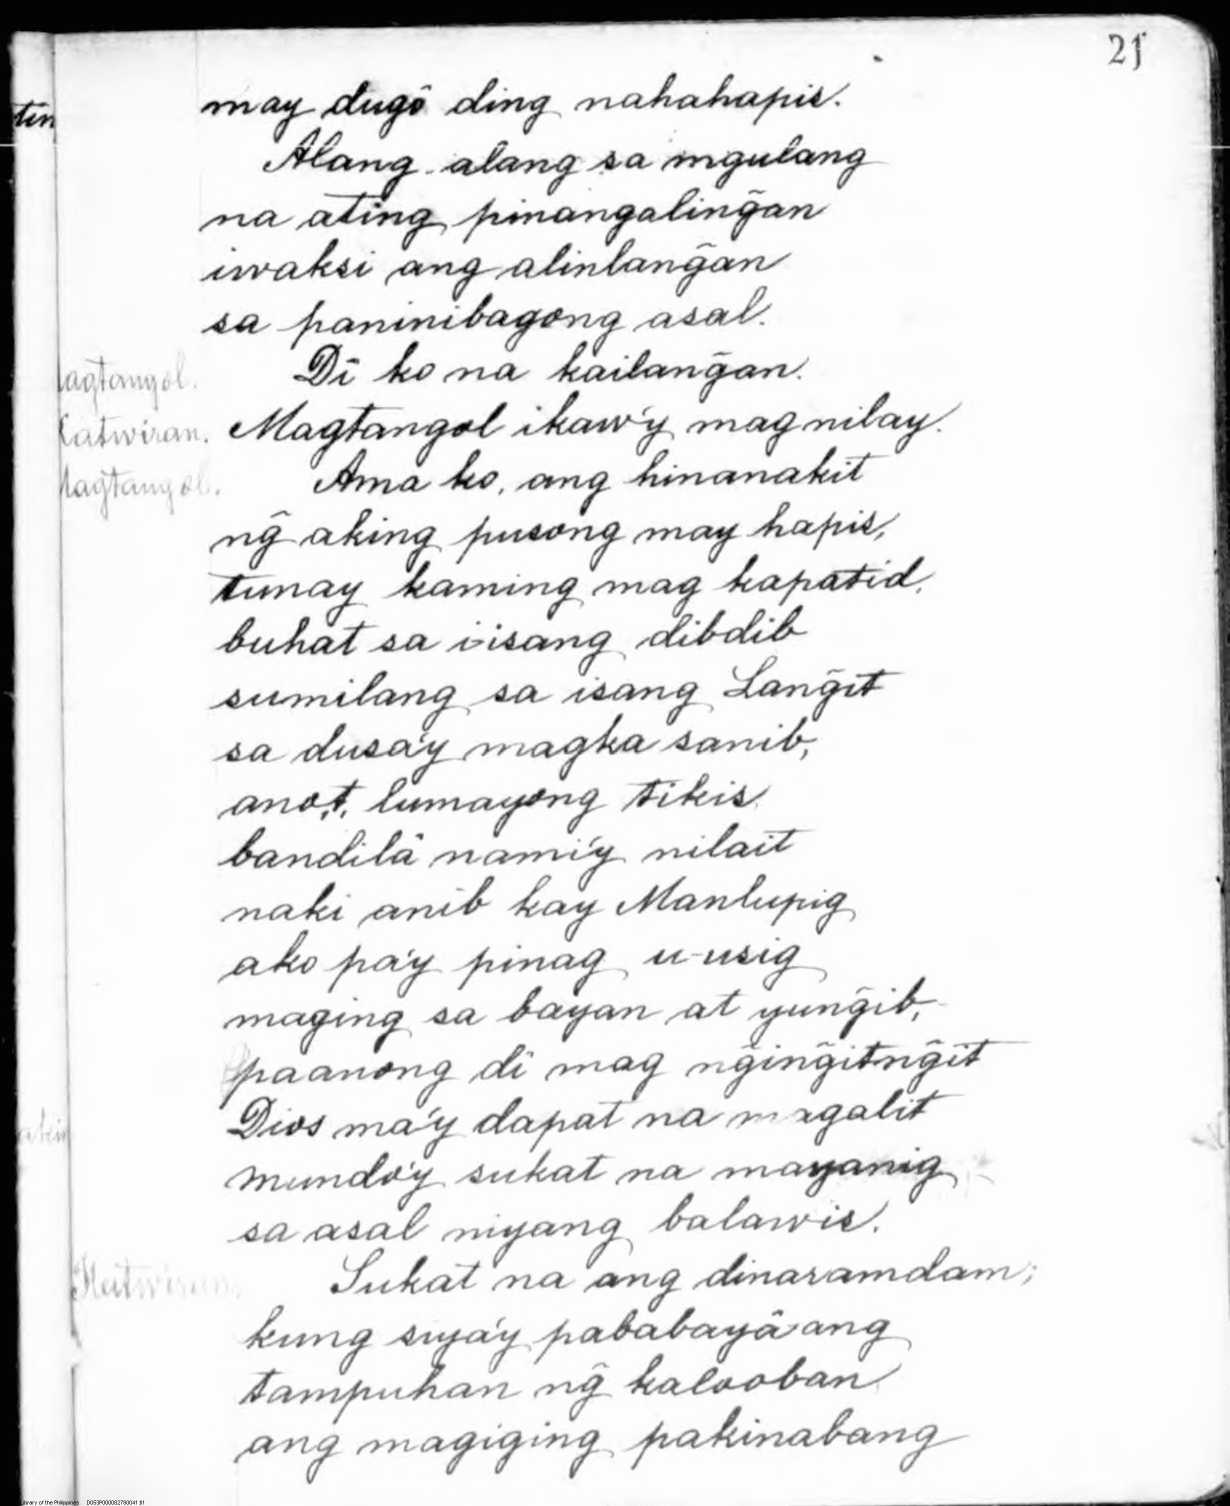 21
may dugô ding nahahapis.
Alang-alang sa mgulang
na ating pinangalinğan
iwaksi ang alinlanğan
sa paninibagong asal.
agtangol. Dî ko na kailanğan.
Katwiran. Magtangol ikaw'y mag nilay.
Magtangol. Ama ko, ang hinanakit
nğ aking pusong may hapis,
tunay kaming mag kapatid,
buhat sa i-isang dibdib
sumilang sa isang Lanğit
sa dusa'y magka sanib,
ano,t, lumayong tikis
bandilâ nami'y nilait
naki anib kay Manlupig
ako pa'y pinag u-usig
maging sa bayan at yunğib,
paanong di mag nğinğitnğit
Dios ma'y dapat na magalit
mundo'y sukat na mayanig
sa asal niyang balawis.
Katwiran. Sukat na ang dinaramdam;
kung siya'y pababayâ ang
tampuhan nğ kalooban
ang magiging pakinabang